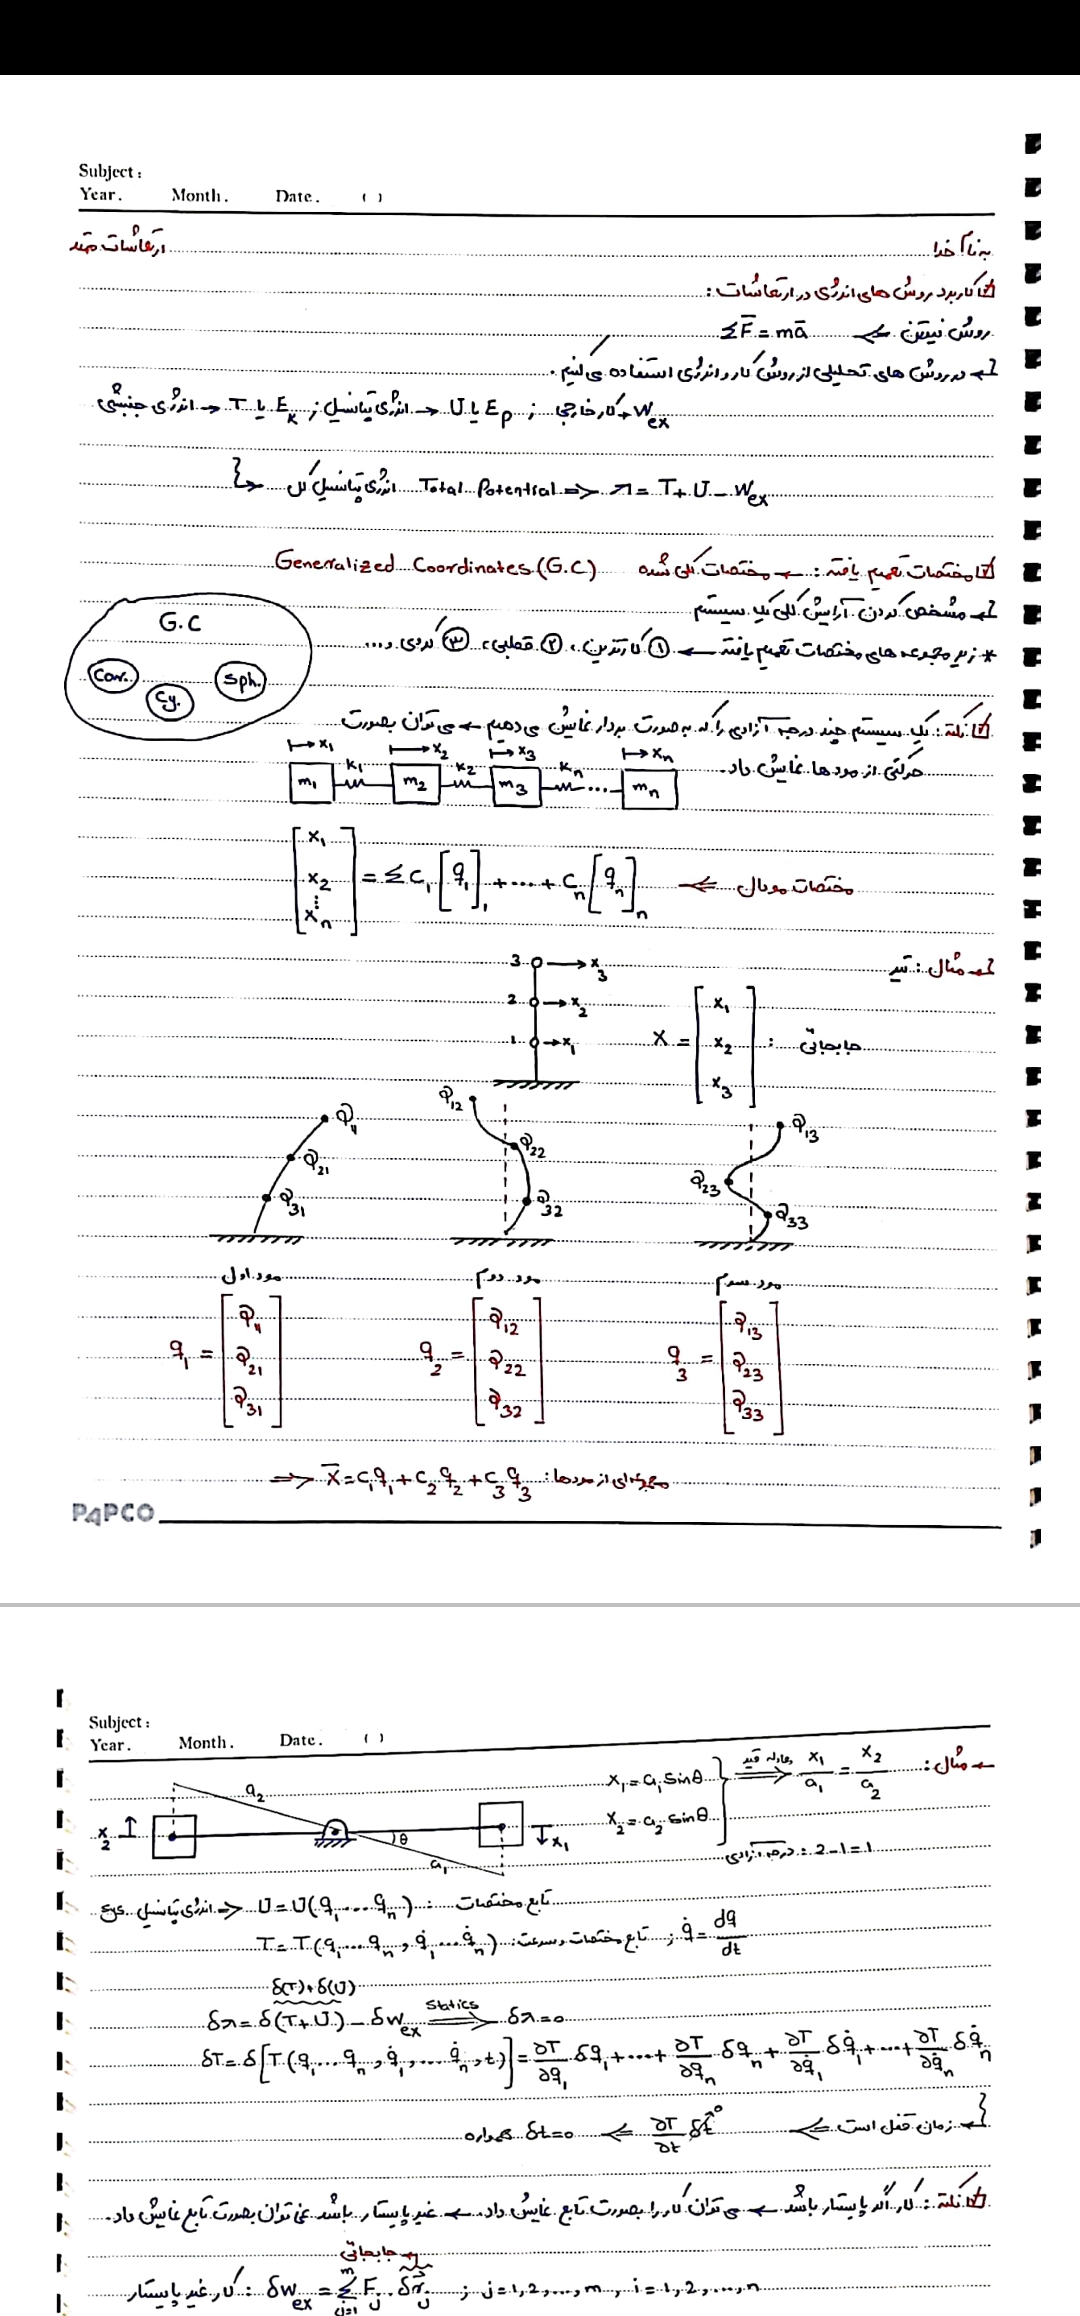 Subject :
Year . Month . Date . ( )
به نام خدا ارتعاشات ممتد
کاربرد روش های انرژی در ارتعاشات :
روش نیوتن ⇐ ΣF̄ = mā
در روش های تحلیلی از روش کار و انرژی استفاده می کنیم .
W_ex → کار خارجی ; E_p یا U → انرژی پتانسیل ; E_k یا T → انرژی جنبشی
انرژی پتانسیل کل Total Potential ⇒ π = T + U - W_ex
مختصات تعمیم یافته : ← مختصات کلی شده Generalized Coordinates (G.C)
مشخص کردن آرایش کلی یک سیستم
* زیر مجموعه های مختصات تعمیم یافته ← ① کارتزین ، ② قطبی ، ③ کروی و ...
G.C
Car. Cy. Sph.
نکته : یک سیستم چند درجه آزادی را که به صورت بردار نمایش می دهیم ← می توان بصورت
حرکتی از مودها نمایش داد.
x₁ x₂ x₃ xₙ
m₁ k₁ m₂ k₂ m₃ kₙ ... mₙ
[x₁ x₂ ⋮ xₙ] = Σ c₁ [q₁]₁ + ... + cₙ [qₙ]ₙ ⇐ مختصات مودال
مثال : تیر
3 → x₃
2 → x₂
1 → x₁
جابجائی : X = [x₁ x₂ x₃]
φ₁₁ φ₂₁ φ₃₁
φ₁₂ φ₂₂ φ₃₂
φ₁₃ φ₂₃ φ₃₃
مود اول مود دوم مود سوم
q₁ = [φ₁₁ φ₂₁ φ₃₁] q₂ = [φ₁₂ φ₂₂ φ₃₂] q₃ = [φ₁₃ φ₂₃ φ₃₃]
مجموعه ای از مودها : ⇒ X̄ = c₁q₁ + c₂q₂ + c₃q₃
PAPCO
Subject :
Year . Month . Date . ( )
مثال :
x₁ = a₁ sinθ
x₂ = a₂ sinθ
معادله قید ⇒ x₁/a₁ = x₂/a₂
درجه آزادی : 2-1=1
x₂ a₂ θ a₁ x₁
sys. انرژی پتانسیل ⇒ U = U(q₁ ... qₙ) : تابع مختصات
T = T(q₁ ... qₙ , q̇₁ ... q̇ₙ) : تابع مختصات و سرعت ; q̇ = dq/dt
δ(T)+δ(U)
δπ = δ(T+U) - δW_ex Statics ⇒ δπ = 0
δT = δ[T(q₁ ... qₙ , q̇₁ , ... q̇ₙ , t)] = ∂T/∂q₁ δq₁ + ... + ∂T/∂qₙ δqₙ + ∂T/∂q̇₁ δq̇₁ + ... + ∂T/∂q̇ₙ δq̇ₙ
زمان قفل است ⇐ ∂T/∂t δt → 0 ⇐ δt=0 همواره
نکته : کار اگر پایستار باشد ← می توان کار را بصورت تابع نمایش داد. ← غیر پایستار باشد نمی توان بصورت تابع نمایش داد.
جابجائی
کار غیر پایستار : δW_ex = Σ_{j=1}^{m} F_j . δr̄_j ; j=1,2,...,m , i=1,2,...,n